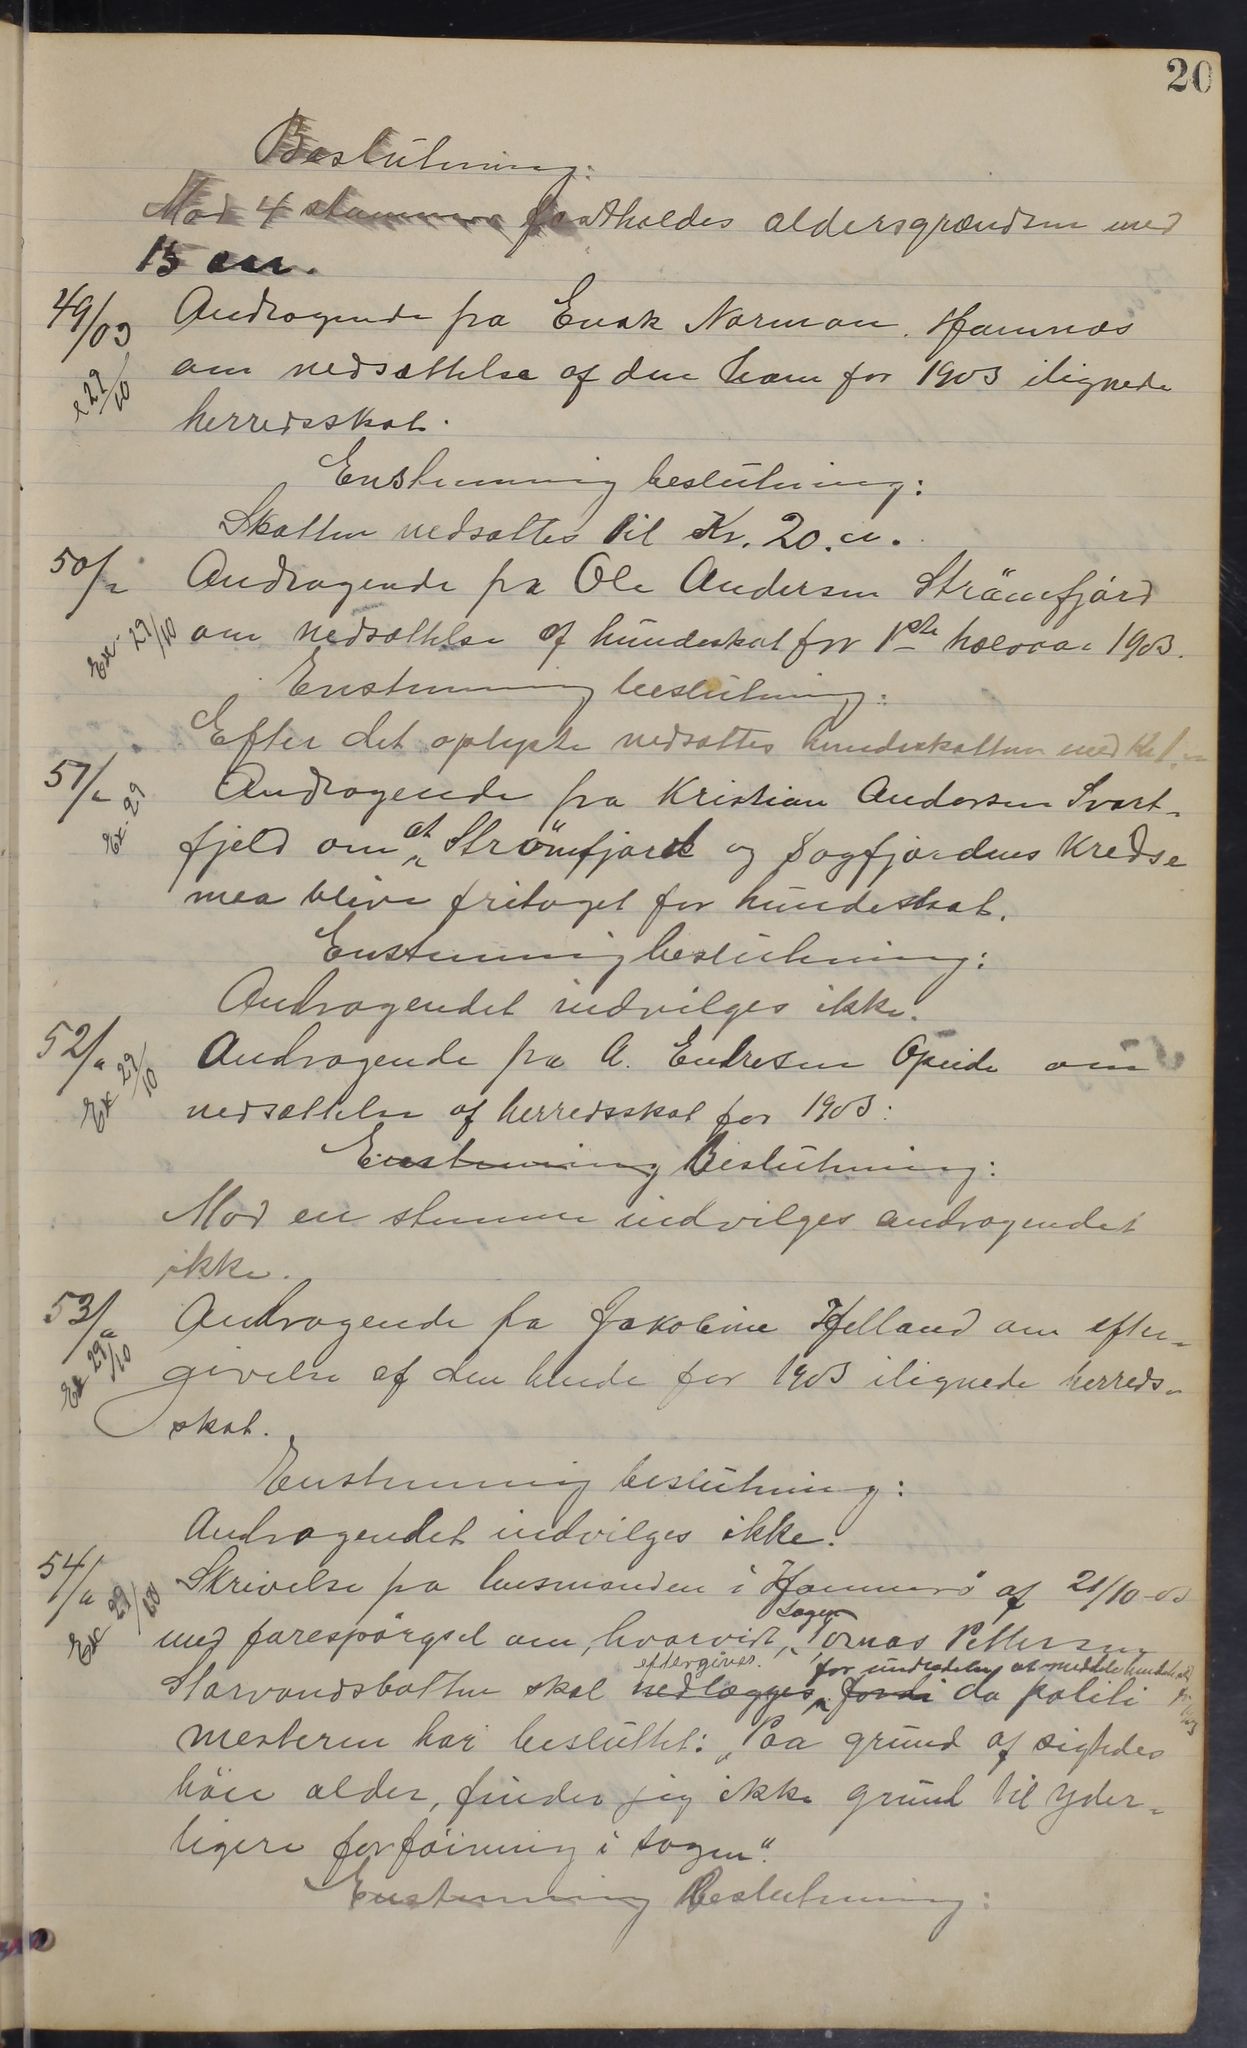 20
Beslutning:
Mod 4 stemmer fastholdes aldersgrændsen med
15 aar.
49/03 Andragende fra Enok Norman. Hamnæs
e 29/10 om nedsættelse af den ham for 1903 ilignede
herredsskat.
Enstemmig beslutning:
Skatten nedsættes til Kr. 20.
50/" Andragende fra Ole Andersen Strömfjord
Ex 29/10 om nedsættelse af hundeskat for 1ste halvaar 1903.
Enstemmig beslutning:
Efter det oplyste nedsættes hundeskatten med Kr 1.
51/" Andragende fra Kristian Andersen Svart-
Ex 29 fjeld om at Strömfjord og Sagfjordens Kredse
maa blive fritaget for hundeskat.
Enstemmig beslutning:
Andragendet indvilges ikke.
52/" Andragende fra A. Endresen Opeide om
Ex 29/10 nedsættelse af herredsskat for 1903:
Enstemmig Beslutning:
Mod en stemme indvilges andragendet
ikke.
53/" Andragende fra Jakobine Helland om efter-
Ex 29/10 givelse af den hende for 1903 ilignede herreds-
skat.
Enstemmig beslutning:
Andragendet indvilges ikke.
54/" Skrivelse fra lensmanden i Hammerö af 21/10-03
Ex 29/10 med forespörgsel om, hvorvidt Sagen Tomas Pettersen
eftergives. for undladelse at meddele
Storvandsbotten skal nedlægges fordi da politi
mesteren har besluttet: "Paa grund af sigtedes
höie alder, finder jeg ikke grund til yder-
ligere forföining i sagen".
Enstemmig Beslutning: